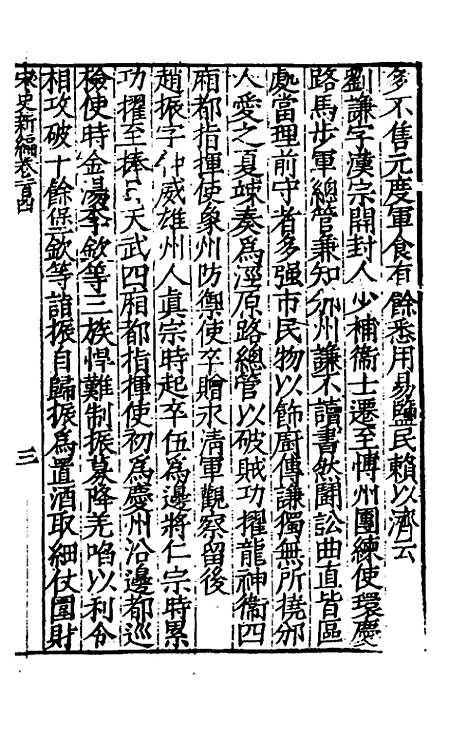 多不售元慶軍食有餘悉用易鹽民賴以濟云
劉謙字漢宗開封人少補衞士遷至博州團練使環慶
路馬步軍總管兼知邠州謙不讀書然鬭訟曲直皆區
處當理前守者多强市民物以飾厨傳謙獨無所撓邠
人愛之夏竦奏為涇原路總管以破賊功擢龍神衞四
厢都指揮使象州防禦使卒贈永清軍觀察留後
趙振字仲威雄州人眞宗時起卒伍為邊將仁宗時累
功擢至捧日天武四厢都指揮使初為慶州沿邊都巡
檢使時金湯李欽等三族悍難制振募降羌啗以利令
相攻破十餘堡欽等詣振自歸振為置酒取細仗圍財
宋史新編卷一百四
三